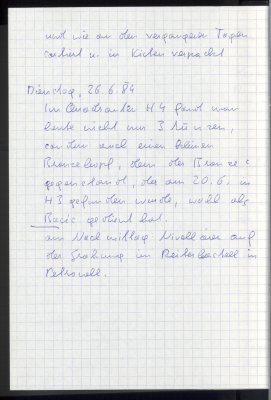 und wie an den vergangenen Tagen
sortiert u. in Kisten verpackt
Dienstag, 26.6.84
Im Quadranten H4 fand man
heute nicht nur 3 Münzen,
sondern auch einen kleinen
Bronzekopf, dem der Bronze-
gegenstand, der am 20.6. in
H3 gefunden wurde, wohl als
Basis gedient hat.
Am Nachmittag Nivellieren auf
der Grabung im Reiterkastell in
Petronell.